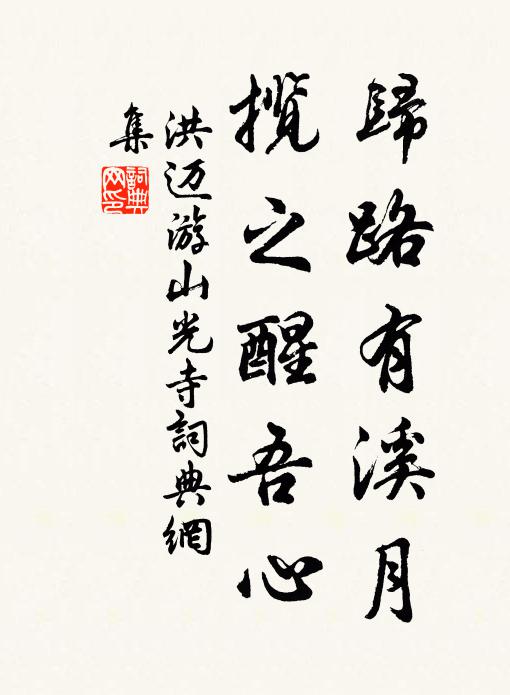 歸路有溪月
攬之醒吾心
洪迈游山光寺詞典網
集
詞典網印